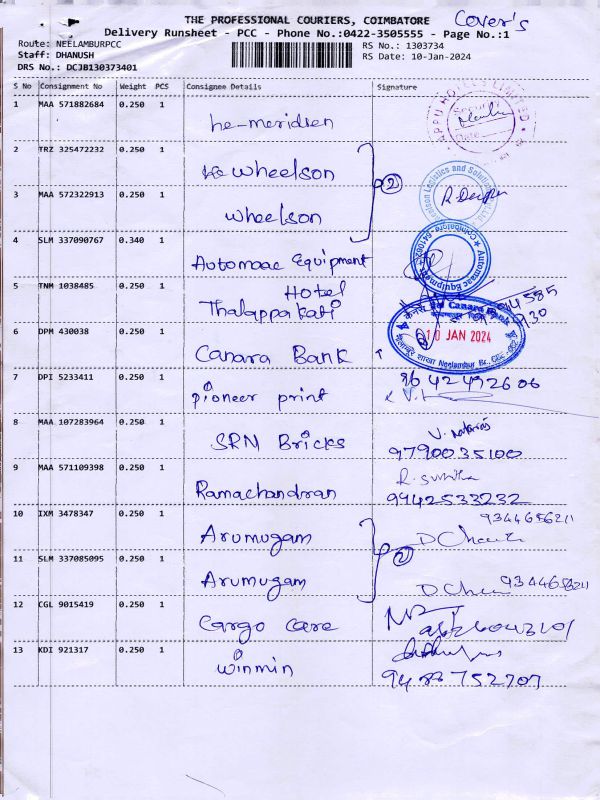 THE PROFESSIONAL COURIERS, COIMBATORE
Cover's
Delivery Runsheet - PCC - Phone No.:0422-3505555 - Page No.:1
Route: NEELAMBURPCC
RS No.: 1303734
Staff: DHANUSH
RS Date: 10-Jan-2024
DRS No.: DCJB130373401
S No Consignment No Weight PCS Consignee Details Signature
1 MAA 571882684 0.250 1
he-meridien
2 TRZ 325472232 0.250 1
Wheelson
3 MAA 572322913 0.250 1
Wheelson
②
4 SLM 337090767 0.340 1
Automaac Equipment
5 TNM 1038485 0.250 1
Hotel
Thalappakati
6 DPM 430038 0.250 1
Canara Bank
Canara Bank
10 JAN 2024
Neelambur Br.
7 DPI 5233411 0.250 1
pioneer print
8 MAA 107283964 0.250 1
SRN Bricks
9790035100
9 MAA 571109398 0.250 1
Ramachandran
9942533232
10 IXM 3478347 0.250 1
9344656211
Arumugam
11 SLM 337085095 0.250 1
②
Arumugam
9344656211
12 CGL 9015419 0.250 1
Cargo care
13 KDI 921317 0.250 1
winmin